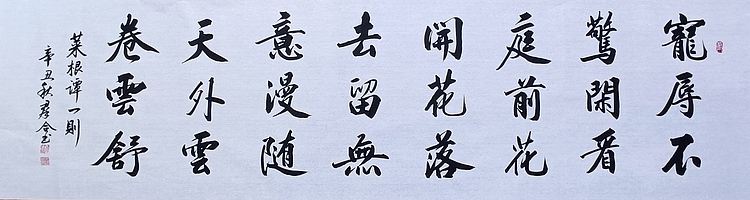 寵辱不
驚閑看
庭前花
開花落
去留無
意漫随
天外雲
卷雲舒
菜根谭一則
辛丑秋